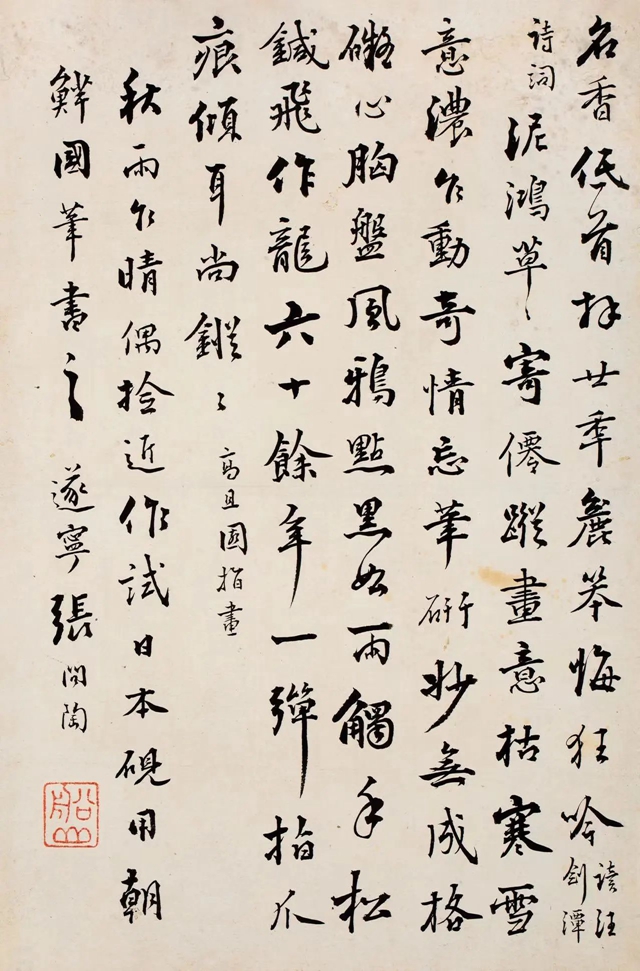 名香低首拜廿年麄笨悔狂吟讀汪劍潭
詩詞泥鴻草〻寄僊蹤畫意枯寒雪
意濃乍動奇情忘筆硏妙無成格
礙心胸盤風鴉點黑如雨觸手松
鍼飛作龍六十餘年一彈指爪
痕傾耳尚鏦〻高且園指畫
秋雨乍晴偶撿近作試日本硯用朝
鮮國筆書之遂寧張問陶
船山